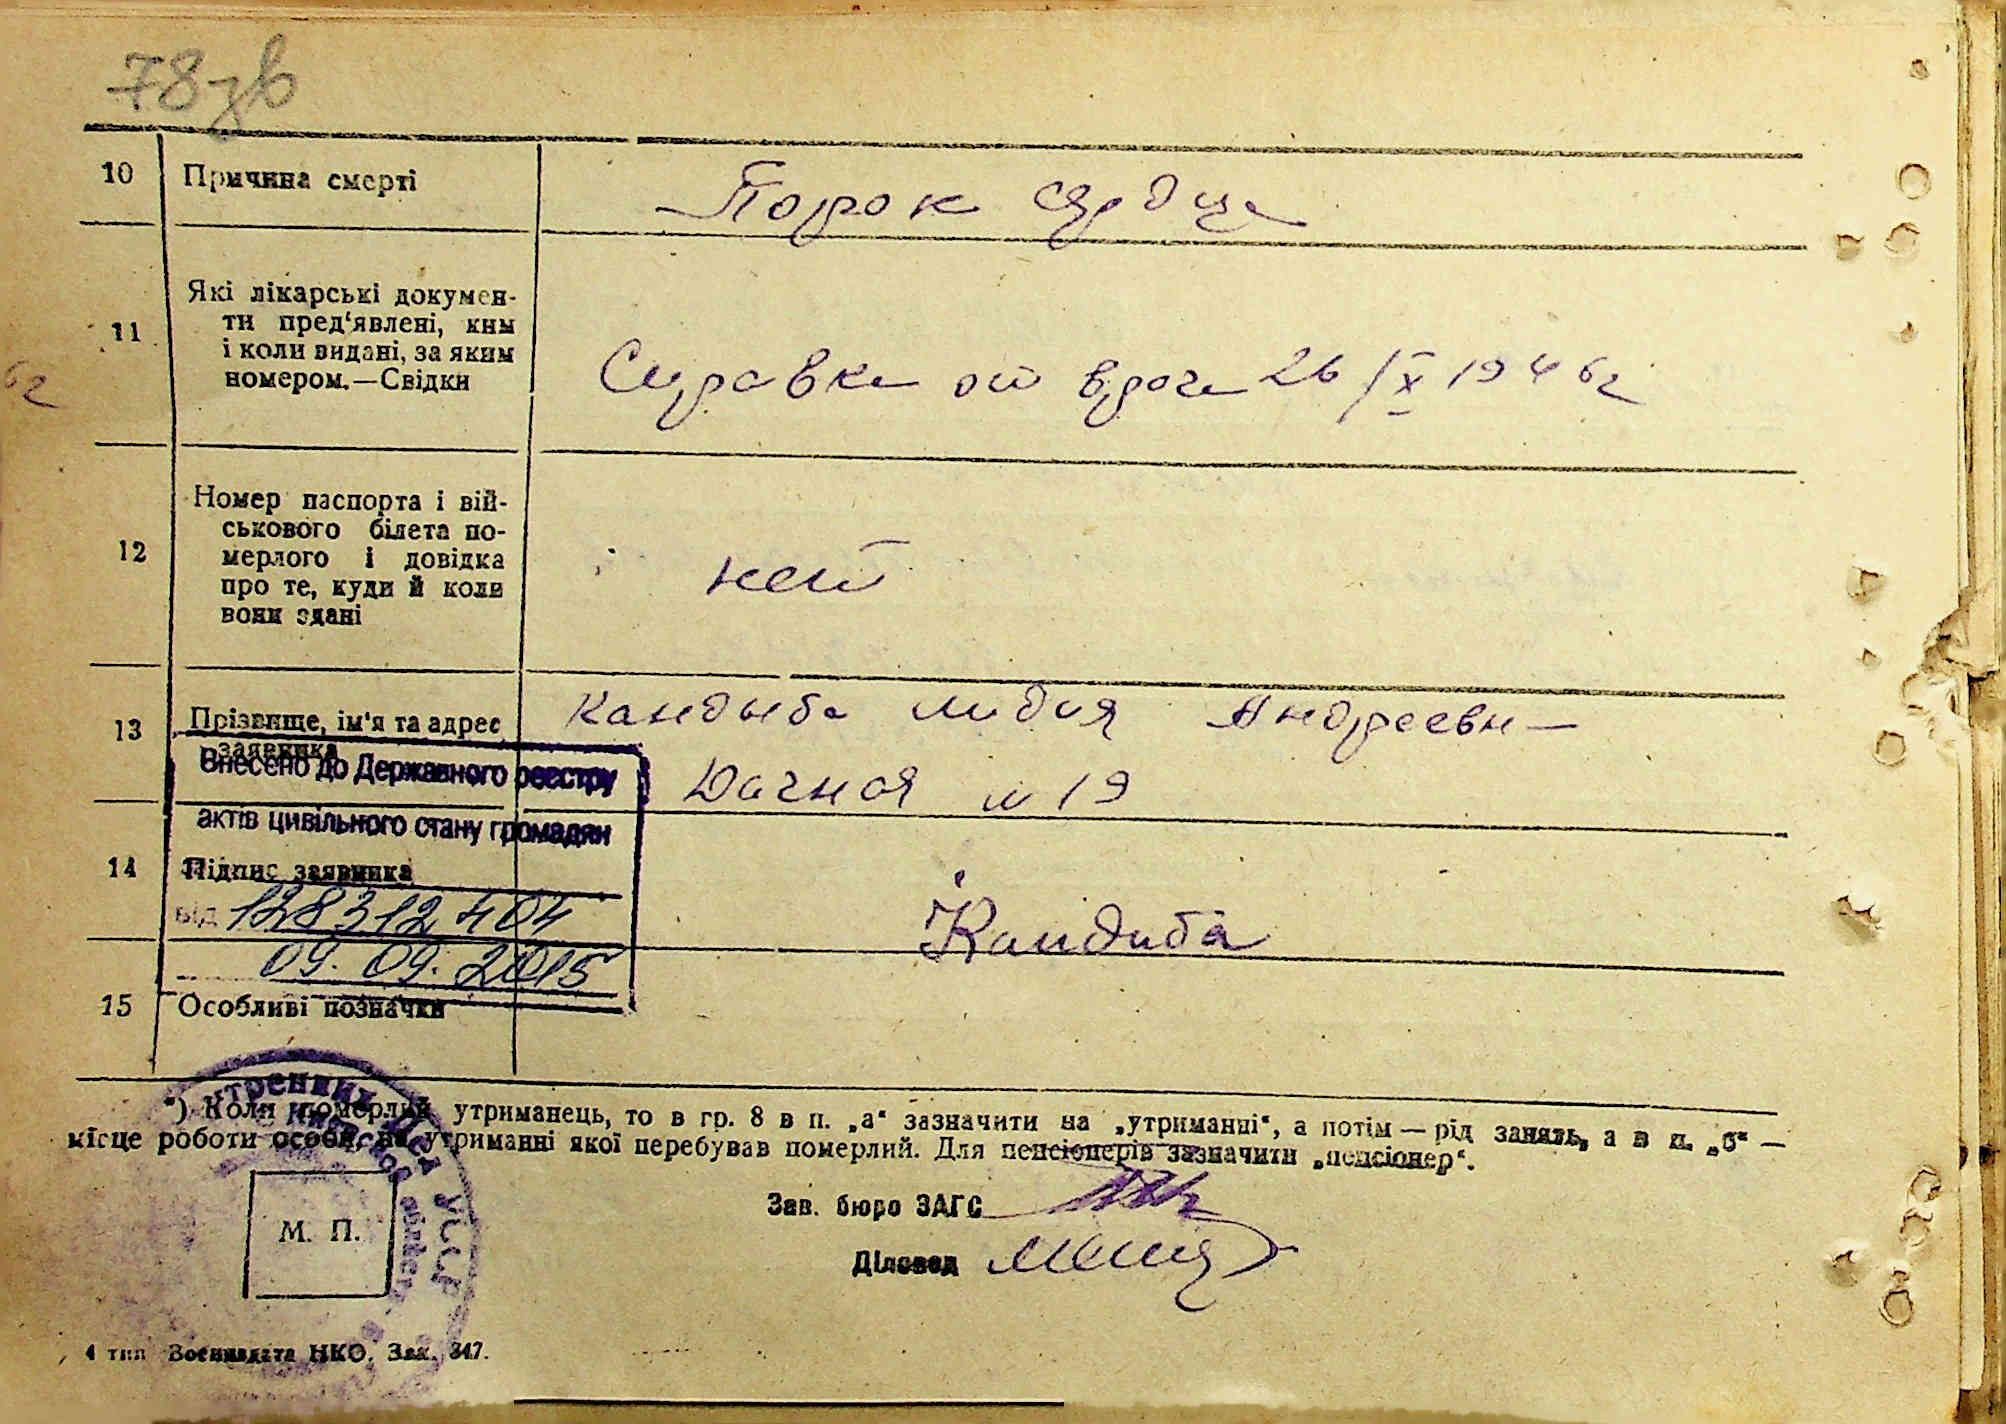 78зв
10 Причина смерті Порок сердца
11 Які лікарські докумен-
ти пред'явлені, ким
і коли видані, за яким
номером.—Свідки
Справка от врача 26/X 1946г
6г
12 Номер паспорта і вій-
ськового білета по-
мерлого і довідка
про те, куди й коли
вони здані
нет
13 Прізвище, ім'я та адрес
заявника
Кандыба Лидия Андреевн
Дачная № 19
Внесено до Державного реєстру
актів цивільного стану громадян
14 Підпис заявника
Кандиба
від 128312404
09.09.2015
15 Особливі позначки
*) Коли померлий утриманець, то в гр. 8 в п. „а“ зазначити на „утриманні“, а потім — рід занять, а в п. „б“ —
місце роботи особи, на утриманні якої перебував померлий. Для пенсіонерів зазначити „пенсіонер“.
Зав. бюро ЗАГС
Діловод
М. П.
УССР
4 тип Воениздата НКО. Зак. 347.